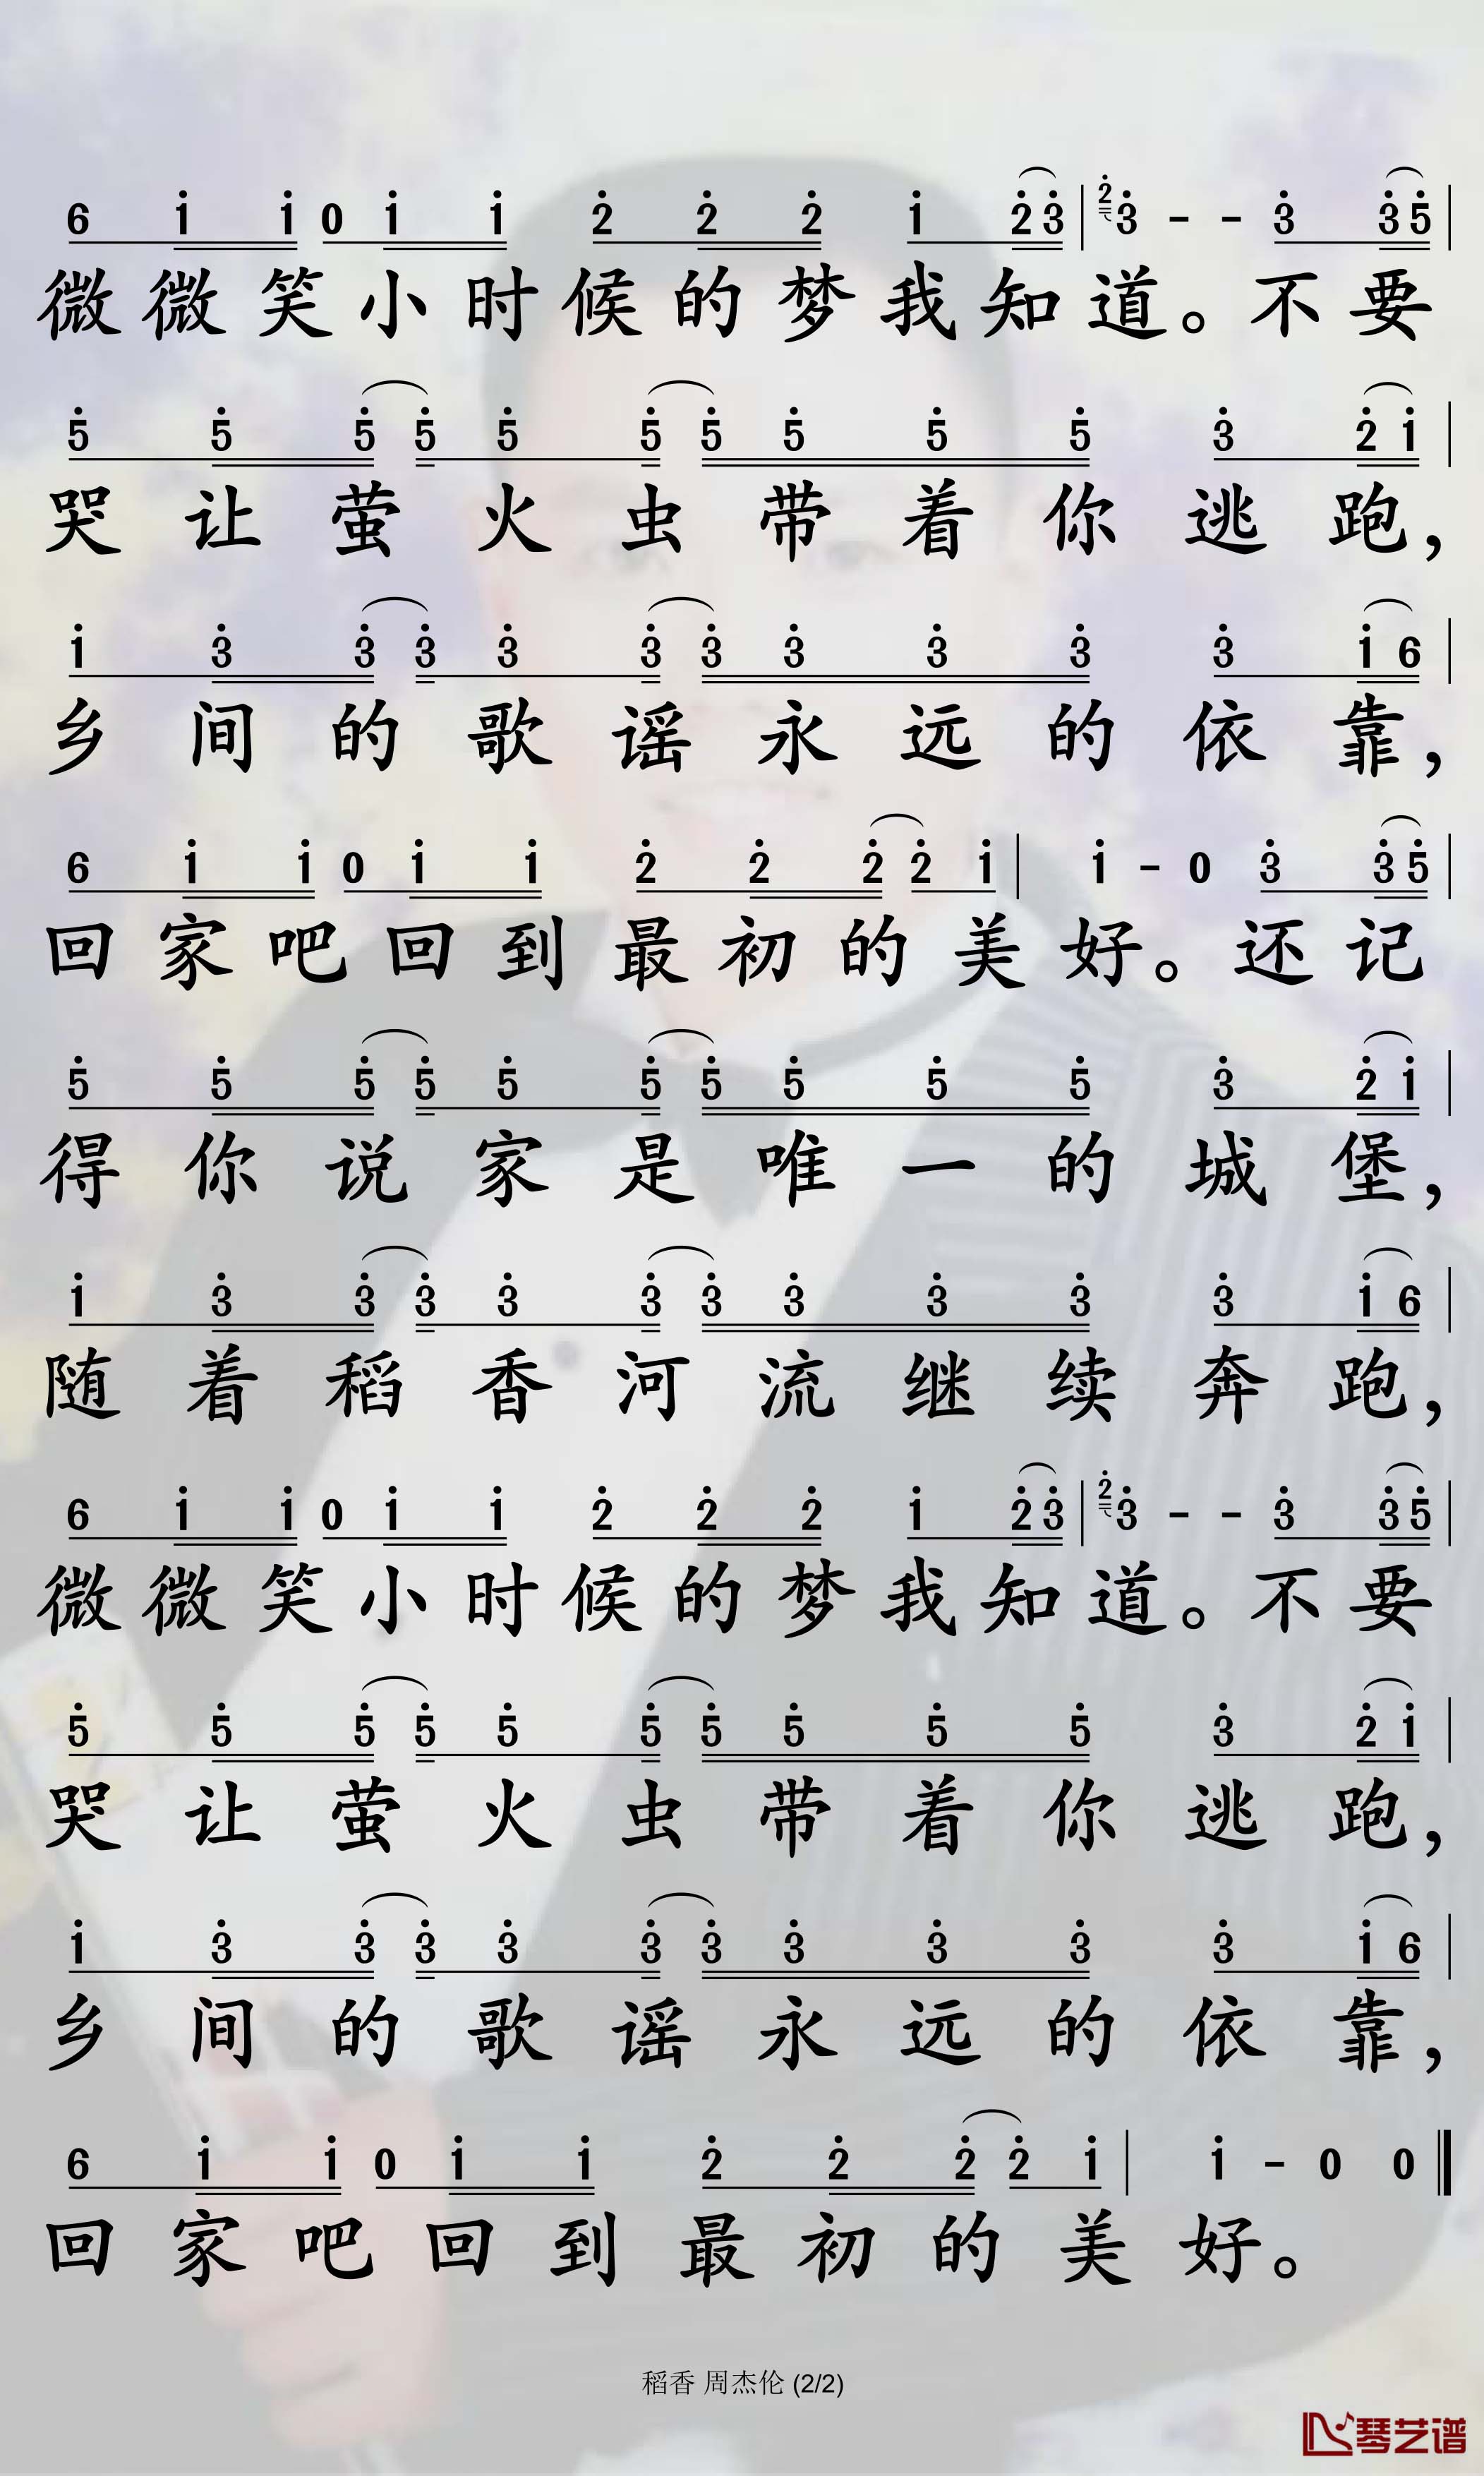 6 1̇ 1̇ 0 1̇ 1̇ 2̇ 2̇ 2̇ 1̇ 2̇ 3̇ | 2̇ 3̇ - - 3̇ 3̇ 5̇ |
微微笑小时候的梦我知道。不要
5̇ 5̇ 5̇ 5̇ 5̇ 5̇ 5̇ 5̇ 5̇ 5̇ 3̇ 2̇ 1̇ |
哭让萤火虫带着你逃跑，
1̇ 3̇ 3̇ 3̇ 3̇ 3̇ 3̇ 3̇ 3̇ 3̇ 3̇ 1̇ 6 |
乡间的歌谣永远的依靠，
6 1̇ 1̇ 0 1̇ 1̇ 2̇ 2̇ 2̇ 2̇ 1̇ | 1̇ - 0 3̇ 3̇ 5̇ |
回家吧回到最初的美好。还记
5̇ 5̇ 5̇ 5̇ 5̇ 5̇ 5̇ 5̇ 5̇ 5̇ 3̇ 2̇ 1̇ |
得你说家是唯一的城堡，
1̇ 3̇ 3̇ 3̇ 3̇ 3̇ 3̇ 3̇ 3̇ 3̇ 3̇ 1̇ 6 |
随着稻香河流继续奔跑，
6 1̇ 1̇ 0 1̇ 1̇ 2̇ 2̇ 2̇ 1̇ 2̇ 3̇ | 2̇ 3̇ - - 3̇ 3̇ 5̇ |
微微笑小时候的梦我知道。不要
5̇ 5̇ 5̇ 5̇ 5̇ 5̇ 5̇ 5̇ 5̇ 5̇ 3̇ 2̇ 1̇ |
哭让萤火虫带着你逃跑，
1̇ 3̇ 3̇ 3̇ 3̇ 3̇ 3̇ 3̇ 3̇ 3̇ 3̇ 1̇ 6 |
乡间的歌谣永远的依靠，
6 1̇ 1̇ 0 1̇ 1̇ 2̇ 2̇ 2̇ 2̇ 1̇ | 1̇ - 0 0 ‖
回家吧回到最初的美好。
稻香 周杰伦 (2/2)
琴艺谱